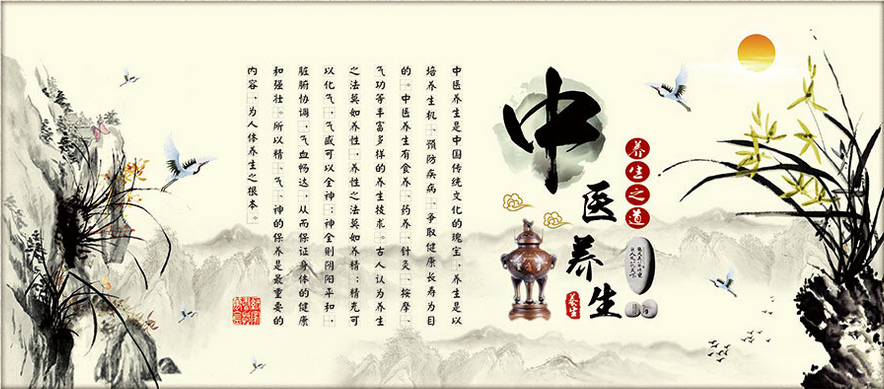 中医养生
养生之道
养生
中医养生是中国传统文化的瑰宝，养生是以
培养生机、预防疾病、争取健康长寿为目
的。中医养生有食养、药养、针灸、按摩、
气功等丰富多样的养生技术。古人认为养生
之法莫如养性，养性之法莫如养精；精充可
以化气，气盛可以全神；神全则阴阳平和，
脏腑协调，气血畅达，从而保证身体的健康
和强壮。所以精、气、神的保养是最重要的
内容，为人体养生之根本。